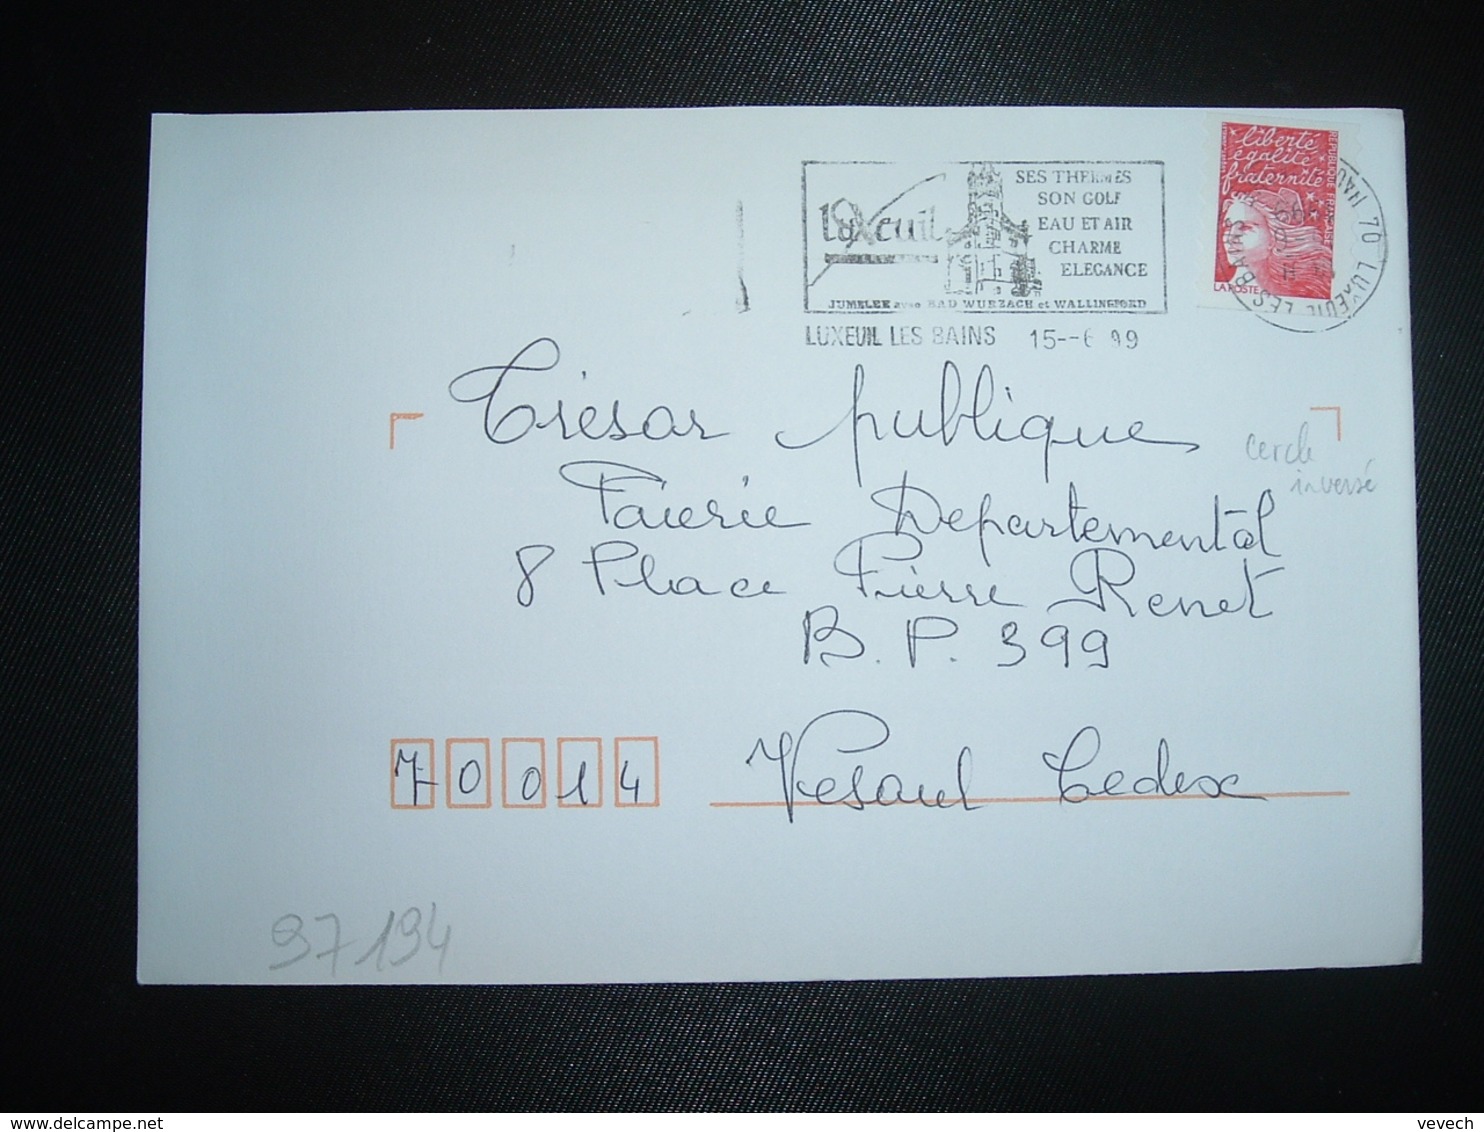 liberté
égalité
fraternité
REPUBLIQUE FRANÇAISE
LA POSTE
70 LUXEUIL LES BAINS
luxeuil
SES THERMES
SON GOLF
EAU ET AIR
CHARME
ELEGANCE
JUMELEE avec BAD WURZACH et WALLINGFORD
LUXEUIL LES BAINS 15--6 99
Trésor publique
cercle
inversé
Paierie Departemental
8 Place Pierre Renet
B.P. 399
70014 Vesoul Cedex
97194
www.delcampe.net
vevech